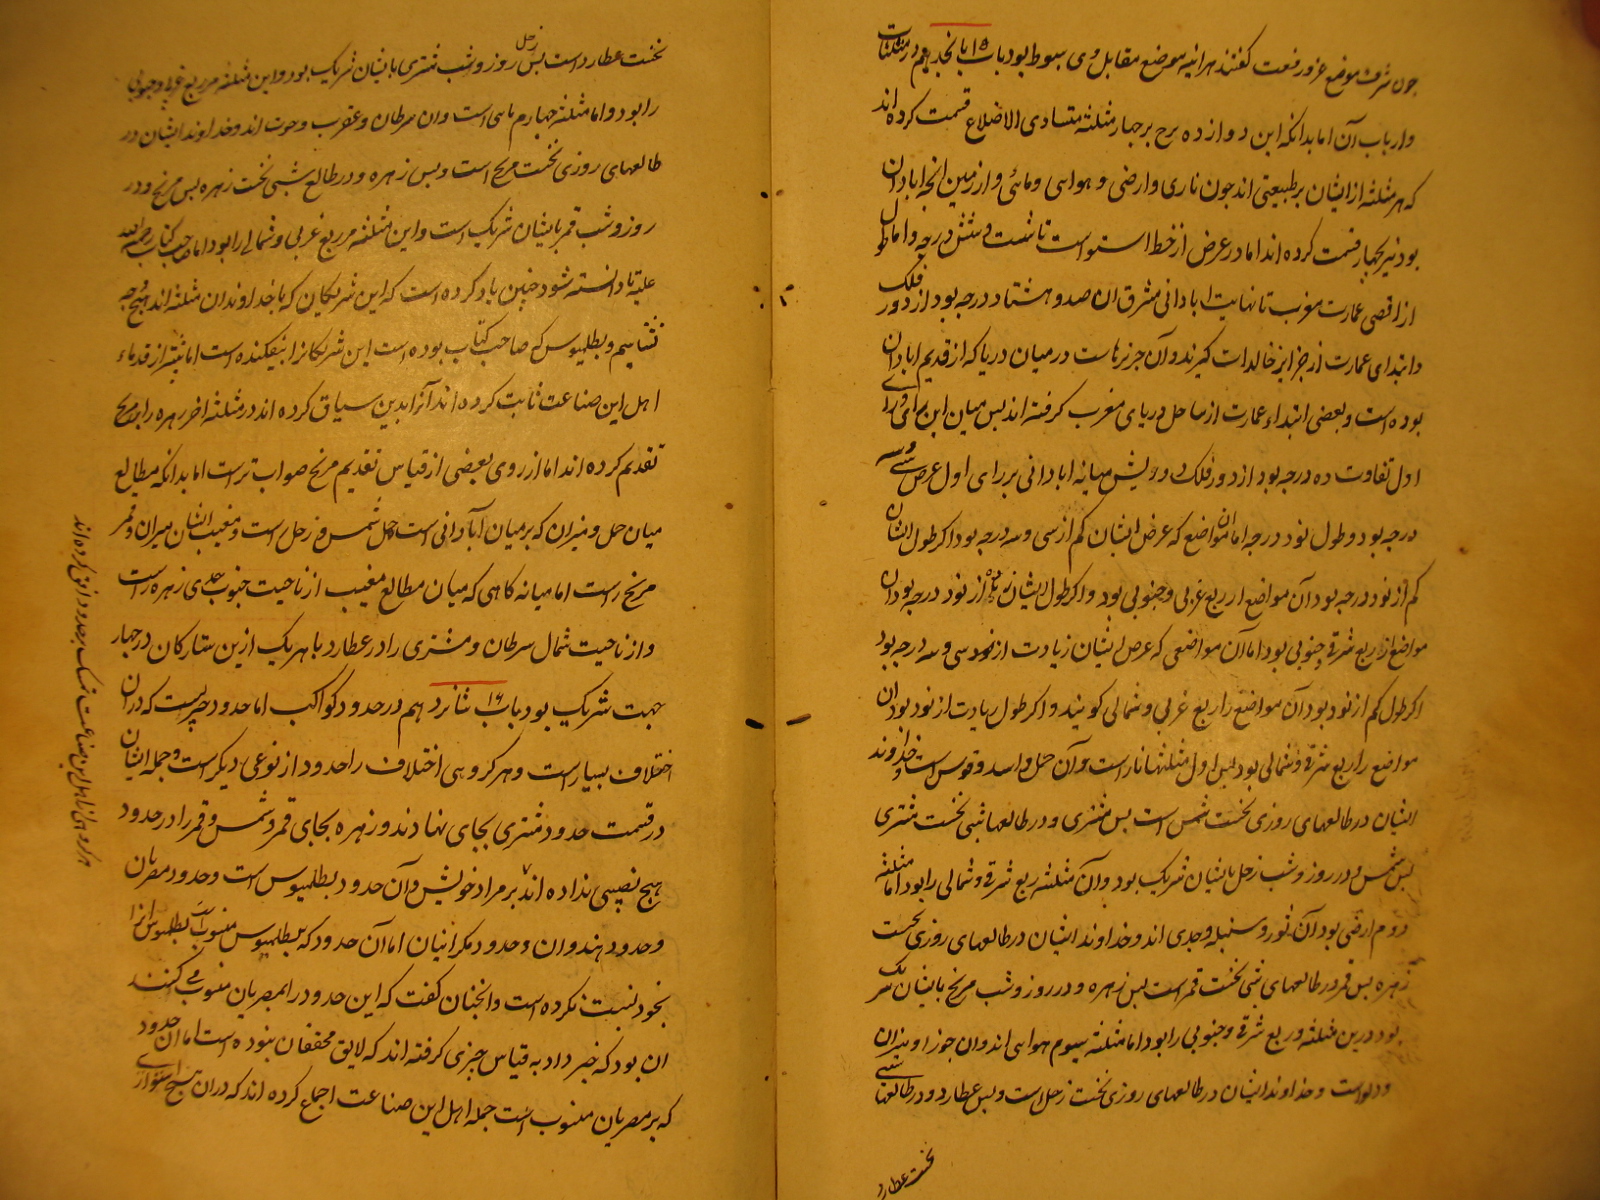 چون شرف موضع عز و رفعت گفتند هرآینه موضع مقابل وی هبوط بود باب ۱۵ پانجدهم در مثلثات
و ارباب آن اما بدانکه این دوازده برج بر چهار مثلثه متساوی الاضلاع قسمت کرده اند
که هر مثلثه از ایشان بر طبیعتی اند چون ناری و ارضی و هوایی و مائی و از زمین انچه ابادان
بود نیز بچهار قسمت کرده اند اما در عرض از خط استواست تا شصت و شش درجه و اما طول
از اقصی عمارت مغرب تا نهایت ابادانی مشرق ان صد و هشتاد درجه بود از دور فلک
و ابتدای عمارت از جزایر خالدات کیرند و آن جزیرهاست در میان دریا که از قدیم ابادان
بوده است و بعضی ابتداء عمارت از ساحل دریای مغرب کرفته اند پس میان این رای و رای
اول تفاوت ده درجه بود از دور فلک میانه ابادانی بر رای اول عرض سی و سه
درجه بود و طول نود درجه اما آن مواضع که عرض ایشان کم از سی و سه درجه بود اکر طول ایشان
کم از نود درجه بود آن مواضع از ربع غربی و جنوبی بود و اکر طول ایشان زیاده از نود درجه بود ان
مواضع از ربع شرقی جنوبی بود اما آن مواضعی که عرض ایشان زیادت از سی و سه درجه بود
اکر طول کم از نود بود آن مواضع را ربع غربی و شمالی کویند و اکر طول زیادت از نود بود ان
مواضع را ربع شرقی و شمالی بود پس اول مثلثها نار است و آن حمل و اسد و قوس است و خداوند
ایشان در طالعهای روزی نخست شمس است پس مشتری و در طالعهای شبی نخست مشتری
پس شمس و در روز و شب زحل بایشان شریک بود و آن مثلثه ربع شرقی و شمالی را بود اما مثلثه
دوم ارضی بود آن ثور و سنبله و جدی اند و خداوند ایشان در طالعهای روزی نخست
زهره پس قمر و در طالعهای شبی نخست قمر است پس زهره و در روز و شب مریخ بایشان شریک
بود درین مثلثه و ربع شرقی و جنوبی را بود اما مثلثه سیوم هوایی اند و ان جوزا و میزان
و دلو است و خداوند ایشان در طالعهای روزی نخست زحل است و پس عطارد و در طالعها شبی
نخست عطارد
نخست عطارد است پس زحل روز و شب مشتری بایشان شریک بود و این مثلثه مر ربع غربی و جنوبی
را بود و اما مثلثه چهارم مائی است و ان سرطان و عقرب و حوت اند و خداوند ایشان در
طالعهای روزی نخست مریخ است و پس زهره و در طالع شبی نخست زهره پس مریخ و در
روز و شب قمر بایشان شریک است و این مثلثه مر ربع غربی و شمالی را بود اما صاحب کتاب رحمة الله
علیه تا دانسته شود چنین یاد کرده است که این شریکان که با خداوندان مثلثه اند هیچ وجه
نشناسیم و بطلمیوس که صاحب کتاب بوده است این شریکانرا بیفکنده است اما بیشتر از قدماء
اهل این صناعت ثابت کرده اند آنرا بدین سیاق کرده اند در مثلثه اخر زهره را بر مریخ
تقدیم کرده اند اما از روی بعضی از قیاس تقدیم مریخ صواب تر است اما بدانکه مطالع
میان حمل و میزان که بر میان آبادانی است حمل شمس و زحل است و مغیب ایشان میزان و قمر
مریخ راست اما میانه کاهی که میان مطالع مغیب از ناحیت جنوب جدی زهره راست
و از ناحیت شمال سرطان و مشتری را در عطارد با هر یک ازین ستارکان در چهار
جهت شریک بود باب ۱۶ شانزدهم در حدود کواکب اما حدود چیزیست که در ان
اختلاف بسیار است و هر کروهی اختلاف را حدود از نوعی دیکر است و جمله ایشان
در قسمت حدود مشتری بجای نهادند و زهره بجای قمر و شمس و قمر را در حدود
هیچ نصیبی نداده اند بر مراد خویش و آن حدود بطلمیوس است و حدود مصریان
و حدود هندوان و حدود مکرانیان اما آن حدود که ببطلمیوس منسوب است بطلمیوس انرا
بخود نسبت نکرده است و انچنان کفت که این حدود را بمصریان منسوب می کنند
ان بود که خبر داد به قیاس چیزی کرفته اند که لایق محققان نبوده است اما ان حدود
که بر مصریان منسوب است جمله اهل این صناعت اجماع کرده اند که در ان هیچ استواری